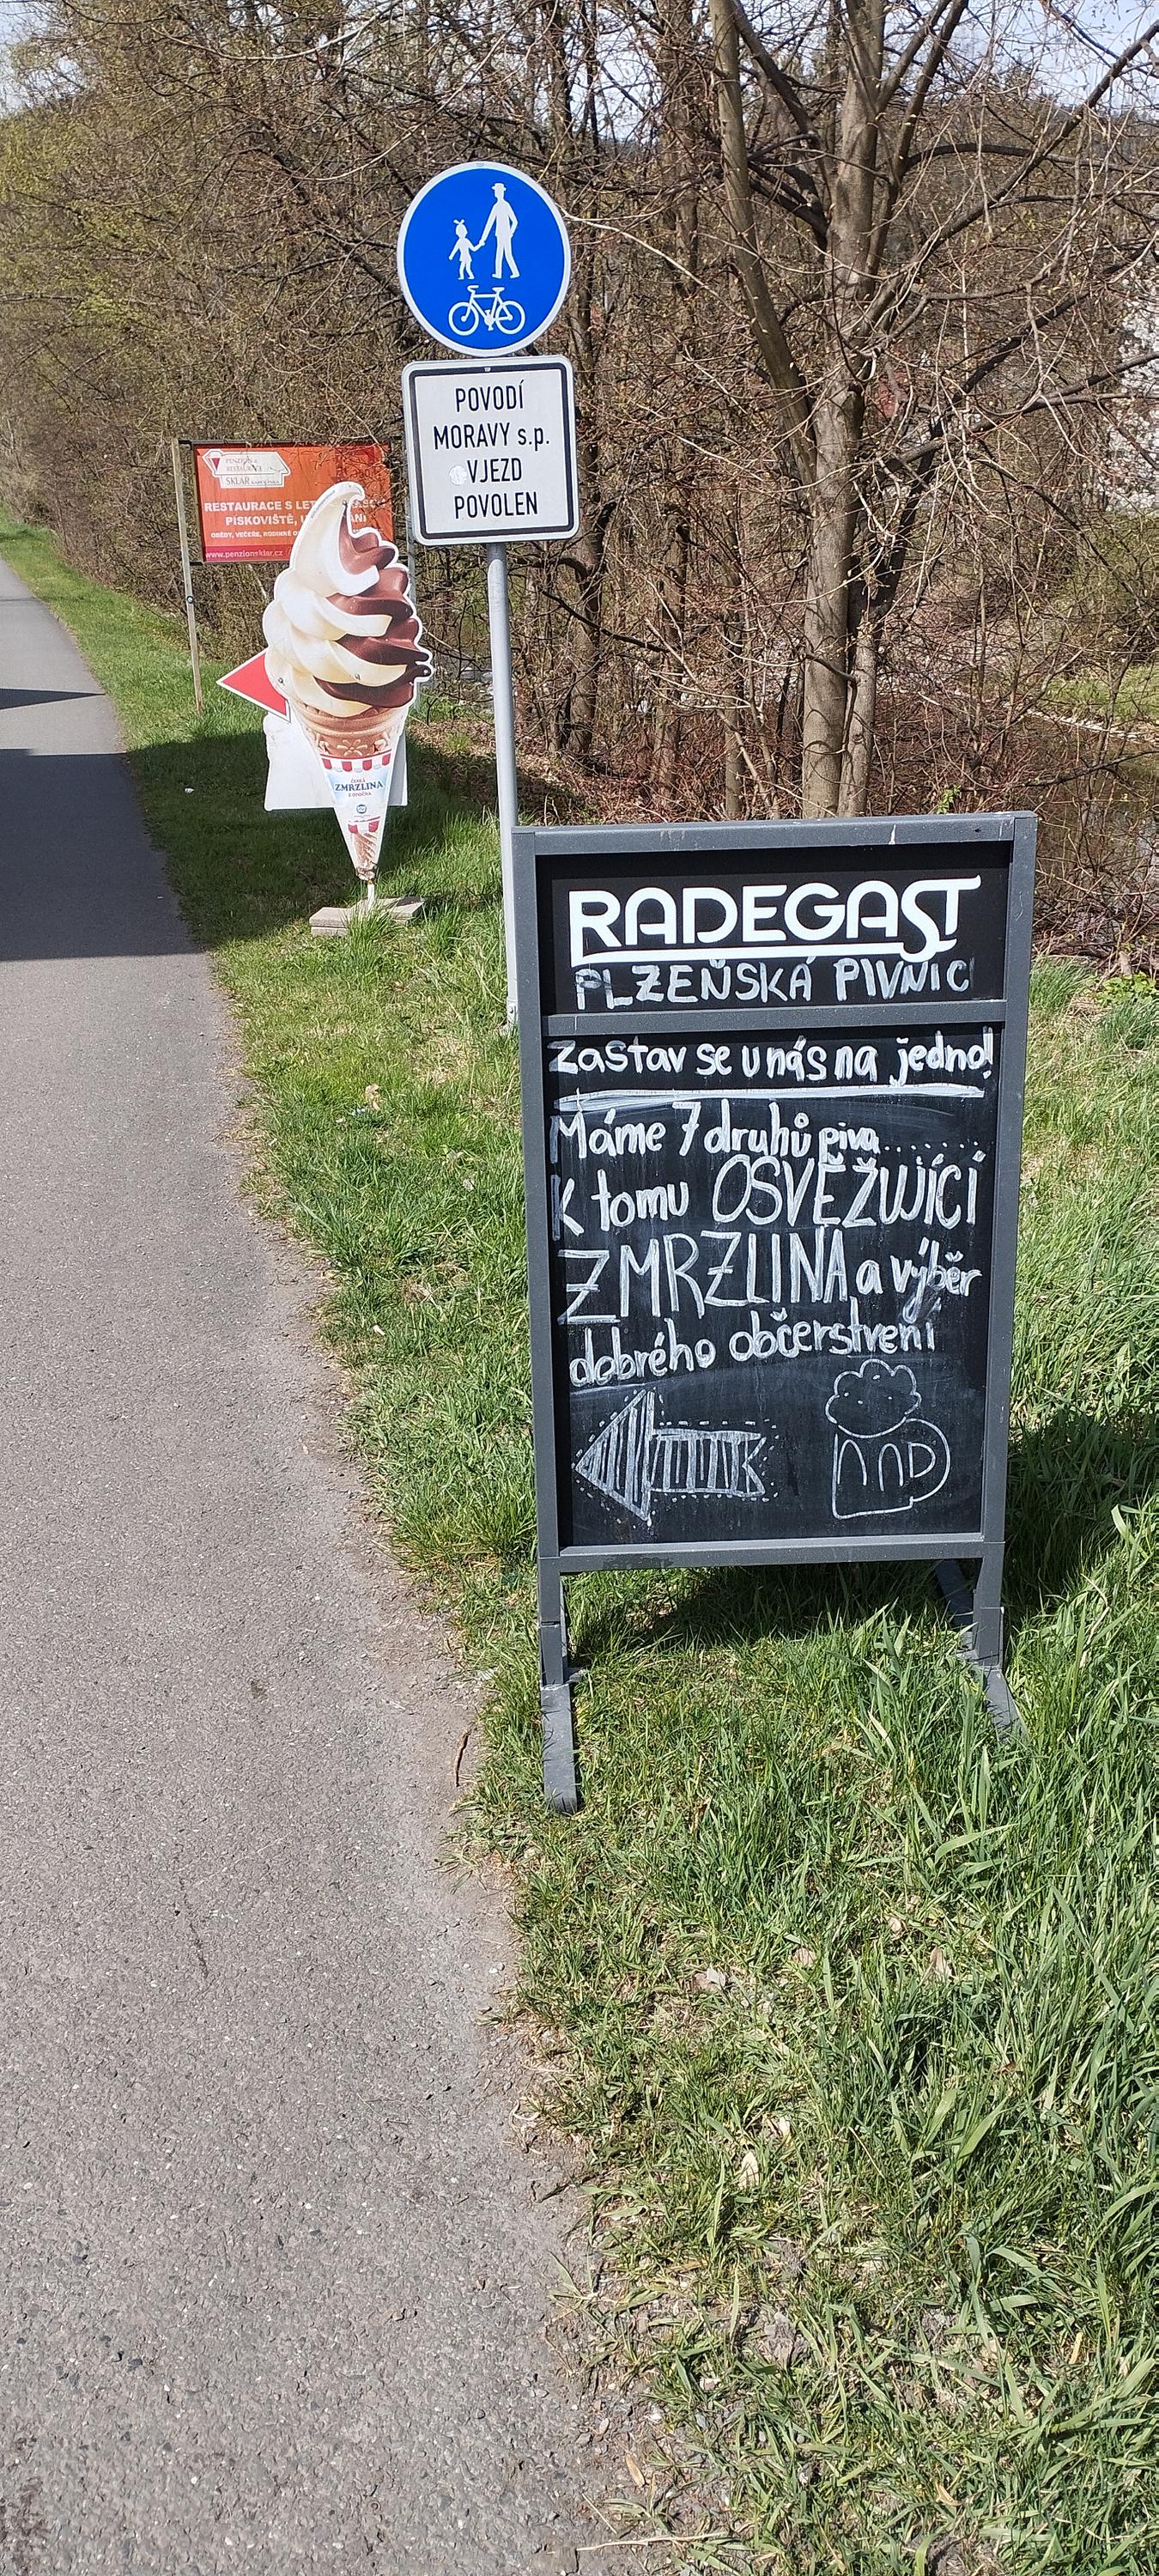 POVODÍ
MORAVY s.p.
VJEZD
POVOLEN
PENZION a
RESTAURACE
SKLÁŘ
RESTAURACE S LET
PÍSKOVIŠTĚ,
OBĚDY, VEČEŘE, RODINNÉ
www.penzionsklar.cz
ČESKÁ
ZMRZLINA
Z OPOČNA
RADEGAST
PLZEŇSKÁ PIVNIC
Zastav se u nás na jedno!
Máme 7 druhů piva........
K tomu OSVĚŽUJÍCÍ
ZMRZLINA a výběr
dobrého občerstvení